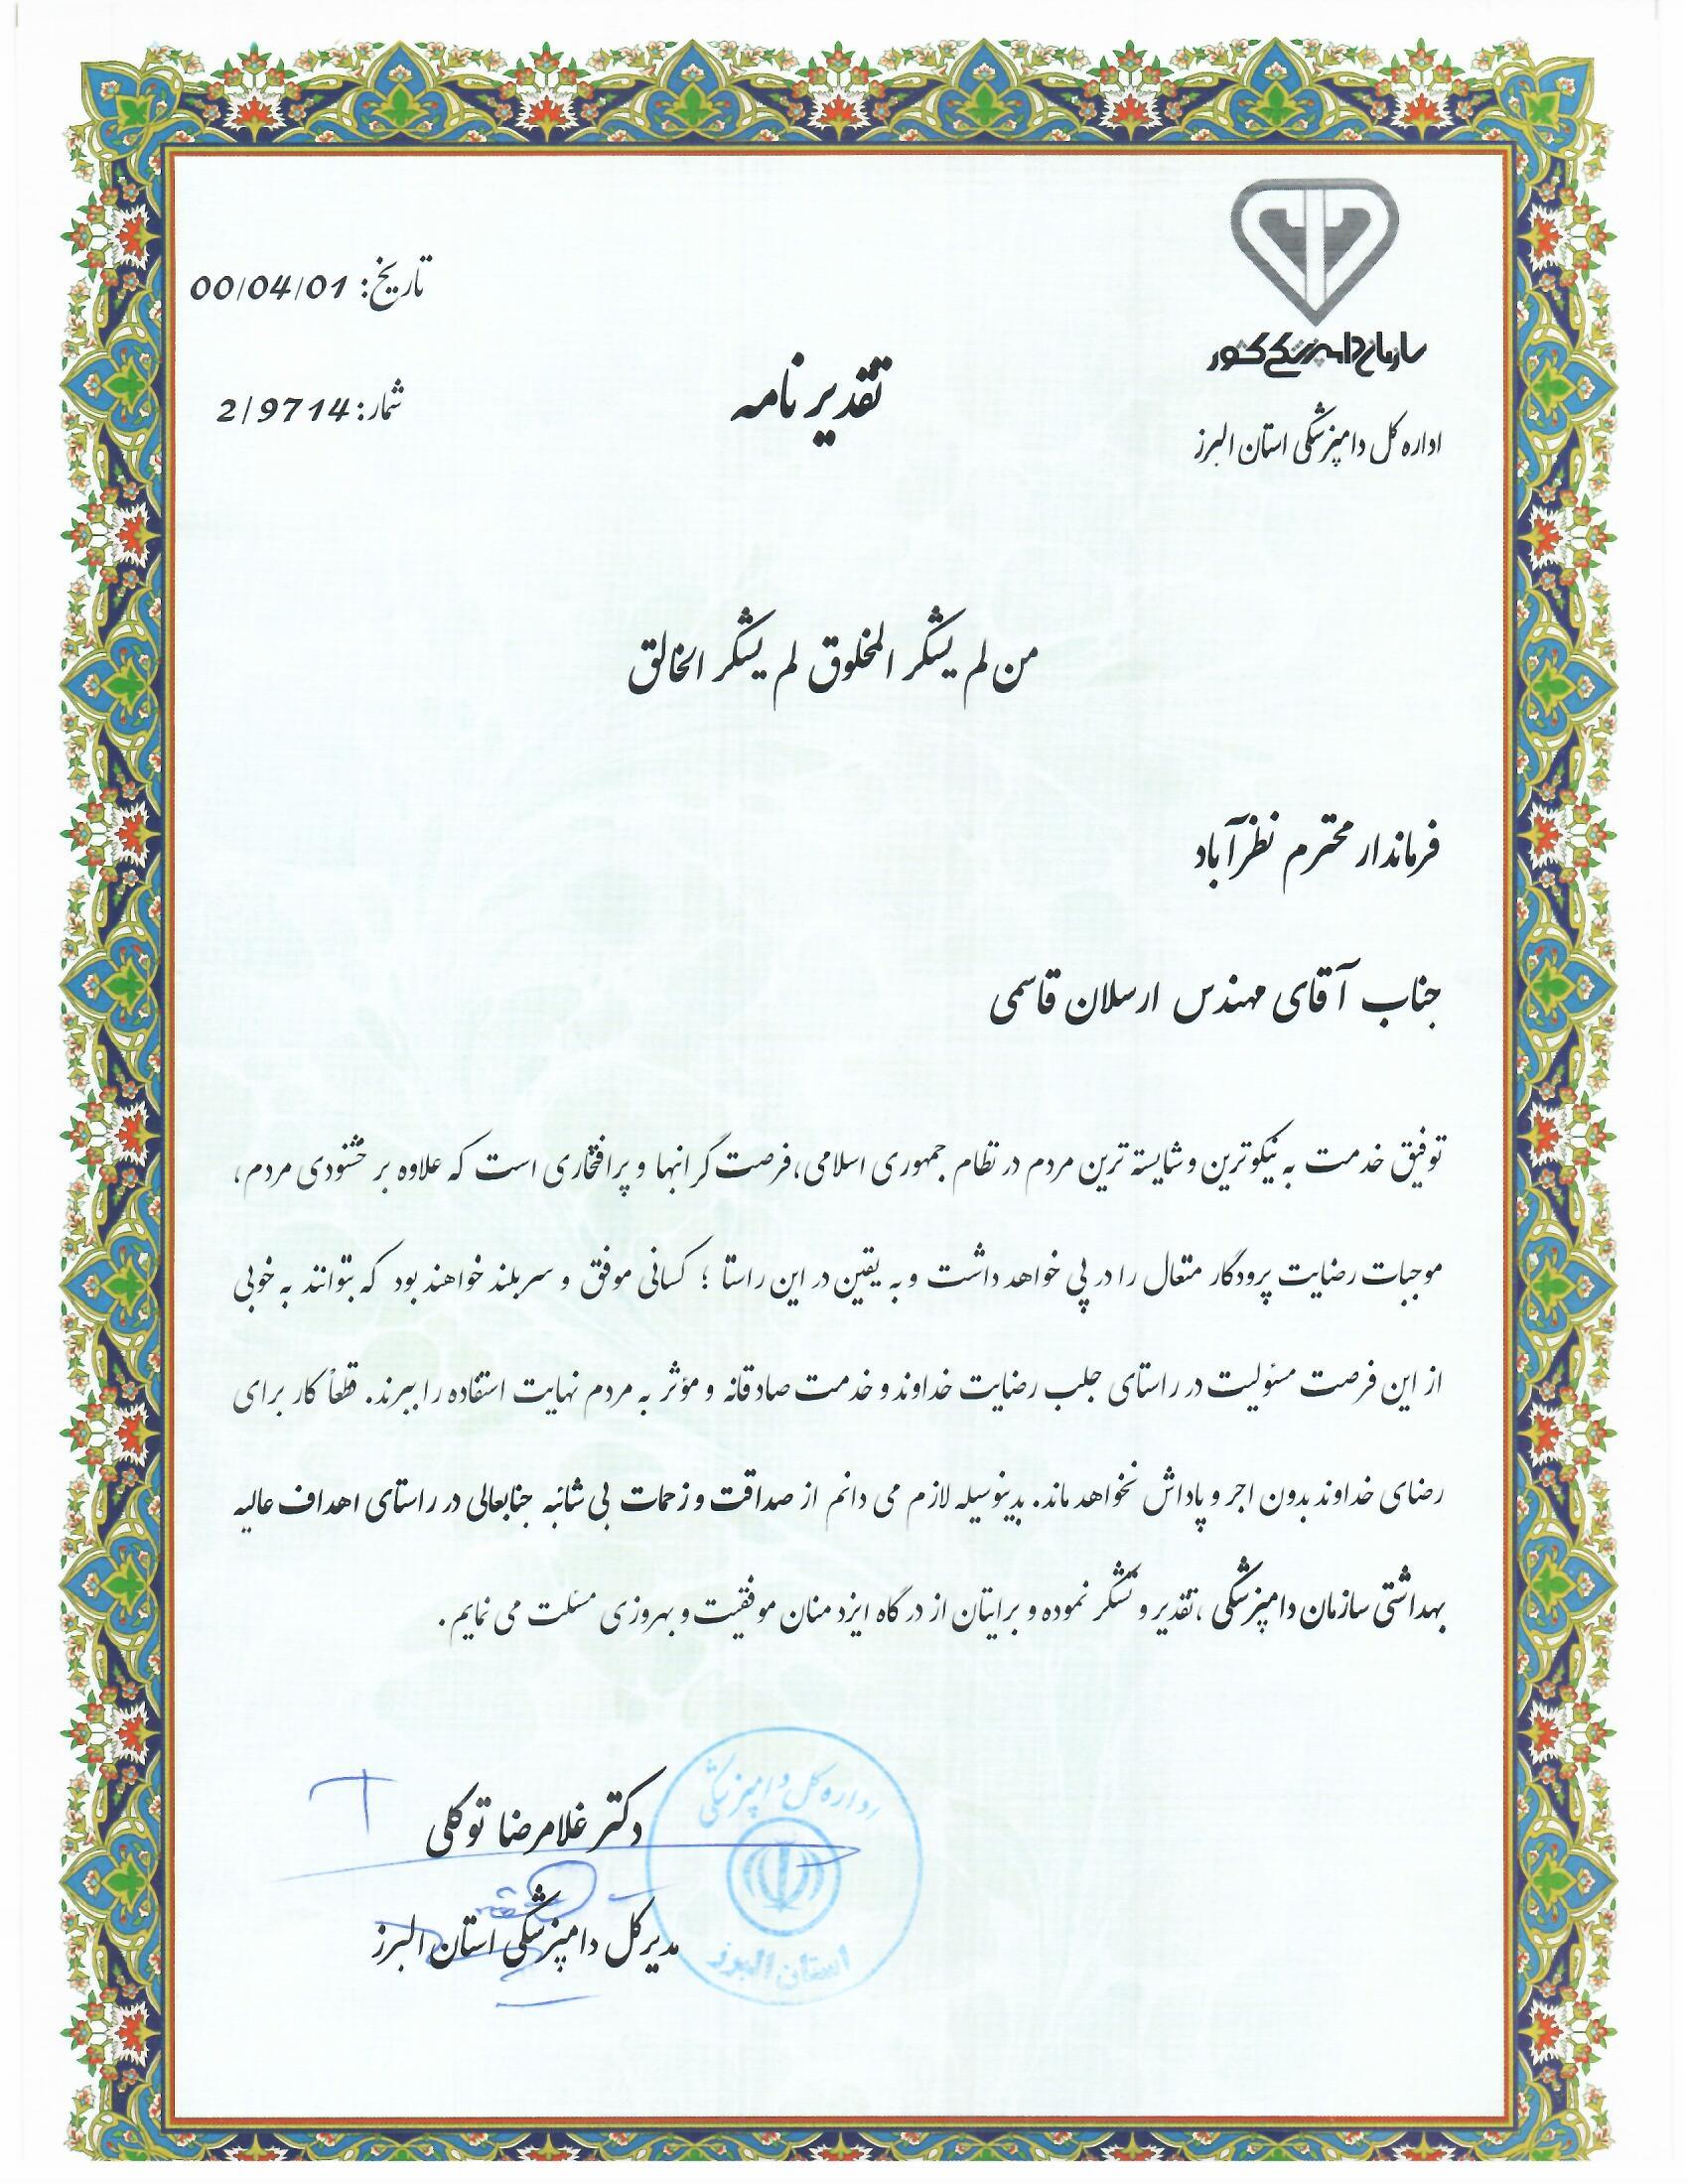 سازمان دامپزشکی کشور
اداره کل دامپزشکی استان البرز
تاریخ: 00/04/01
شمار: 2/9714
تقدیر نامه
من لم یشکر المخلوق لم یشکر الخالق
فرماندار محترم نظرآباد
جناب آقای مهندس ارسلان قاسمی
توفیق خدمت به نیکوترین و شایسته ترین مردم در نظام جمهوری اسلامی،فرصت گرانبها و پرافتخاری است که علاوه بر خشنودی مردم،
موجبات رضایت پرودگار متعال را در پی خواهد داشت و به یقین در این راستا ؛ کسانی موفق و سربلند خواهند بود که بتوانند به خوبی
از این فرصت مسئولیت در راستای جلب رضایت خداوند و خدمت صادقانه و مؤثر به مردم نهایت استفاده را ببرند. قطعاً کار برای
رضای خداوند بدون اجر و پاداش نخواهد ماند. بدینوسیله لازم می دانم از صداقت و زحمات بی شائبه جنابعالی در راستای اهداف عالیه
بهداشتی سازمان دامپزشکی ،تقدیر و تشکر نموده و برایتان از درگاه ایزد منان موفقیت و بهروزی مسئلت می نمایم.
دکتر غلامرضا توکلی
مدیرکل دامپزشکی استان البرز
اداره کل دامپزشکی
استان البرز